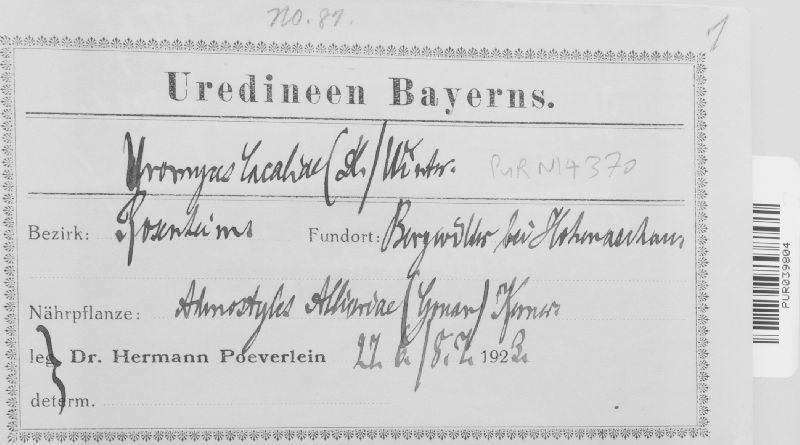 No. 87.
1
Uredineen Bayerns.
Uromyces Cacaliae (DC.) Winter.
PUR N14370
Bezirk: Rosenheim
Fundort: Bergwälder bei Hohenaschau.
Nährpflanze: Adenostyles Alliariae (Gouan) Kerner
leg. Dr. Hermann Poeverlein 27. 6./8. 7. 1923.
determ.
PUR039804